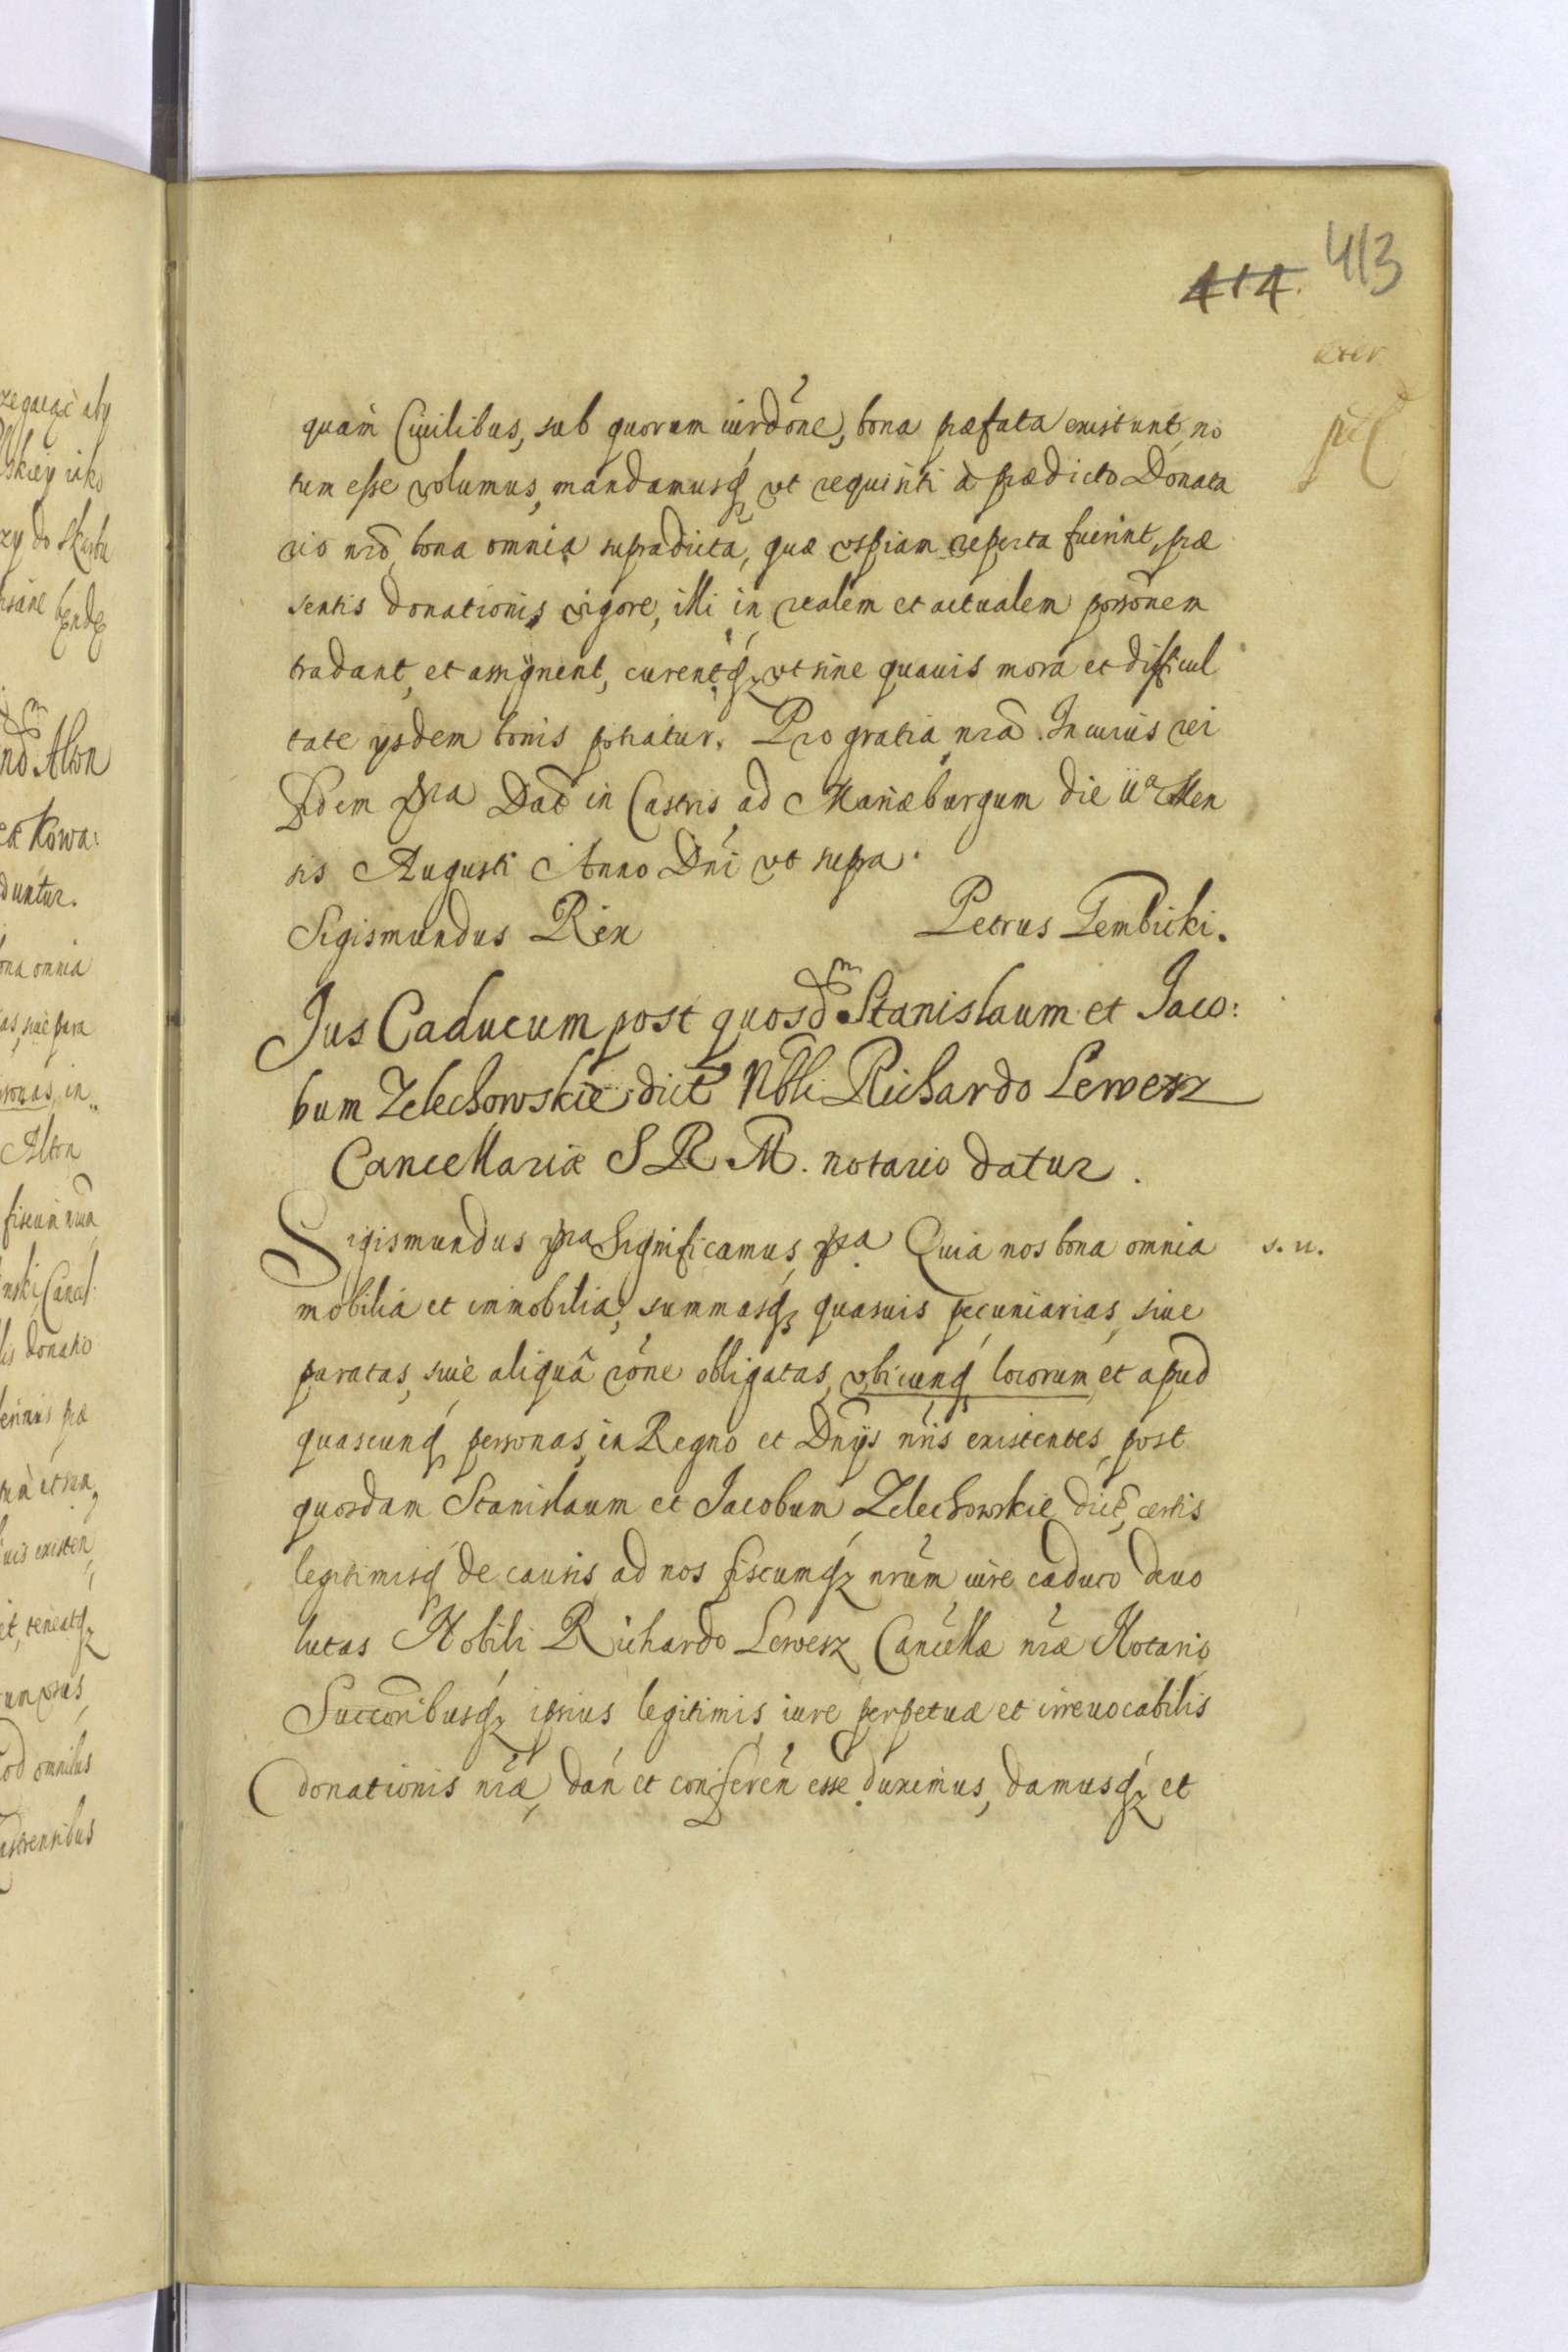 414. 413
quam Ciuilibus, sub quorum iurdőne, bona præfata existunt, no
tum esse volumus, mandamusq ut requisiti à prædicto Donata
rio nrō, bona omnia supradicta, quæ uspiam reperta fuerint, præ
sentis donationis vigore, illi in realem et actualem possōnem
tradant, et assignent, curentq ut sine quauis mora et difficul
tate ysdem bonis potiatur. Pro gratia nrā. In cuius rei
fidem pra Dat in Castris ad Mariæburgum die iia Men
sis Augusti Anno Dni ut supra.
Sigismundus Rex Petrus Gembicki.
Jus Caducum post quosdm Stanislaum et Jaco:
bum Zelechowskie dict Nbli Richardo Lewesz
Cancellariæ S R M. notario datur.
Sigismundus pra Significamus pra Quia nos bona omnia s. n.
mobilia et immobilia, summasq quasuis pecuniarias, siue
paratas, siue aliquâ rōne obligatas, ubicunq locorum et apud
quascunq personas, in Regno et Dnÿs nris existentes, post
quosdam Stanislaum et Jacobum Zelechowskie dict, certis
legitimisq de causis ad nos fiscumq nrum iure caduco deuo
lutas Nobili Richardo Lewesz Cancellæ nræ Notario
Succoribusq ipsius legitimis iure perpetuæ et irreuocabilis
donationis nræ, dan et conferen esse duximus, damusq et
zegaiąć aby
skiey iako
zy do Skarbu
będę
Alton
Kowa:
duntur.
ona omnia
as, siue para
sonas, in
Alton
fiscum
nski Cancel
lis donatio
uis existen
it, teneatq
um usus
od omnibus
astrensibus